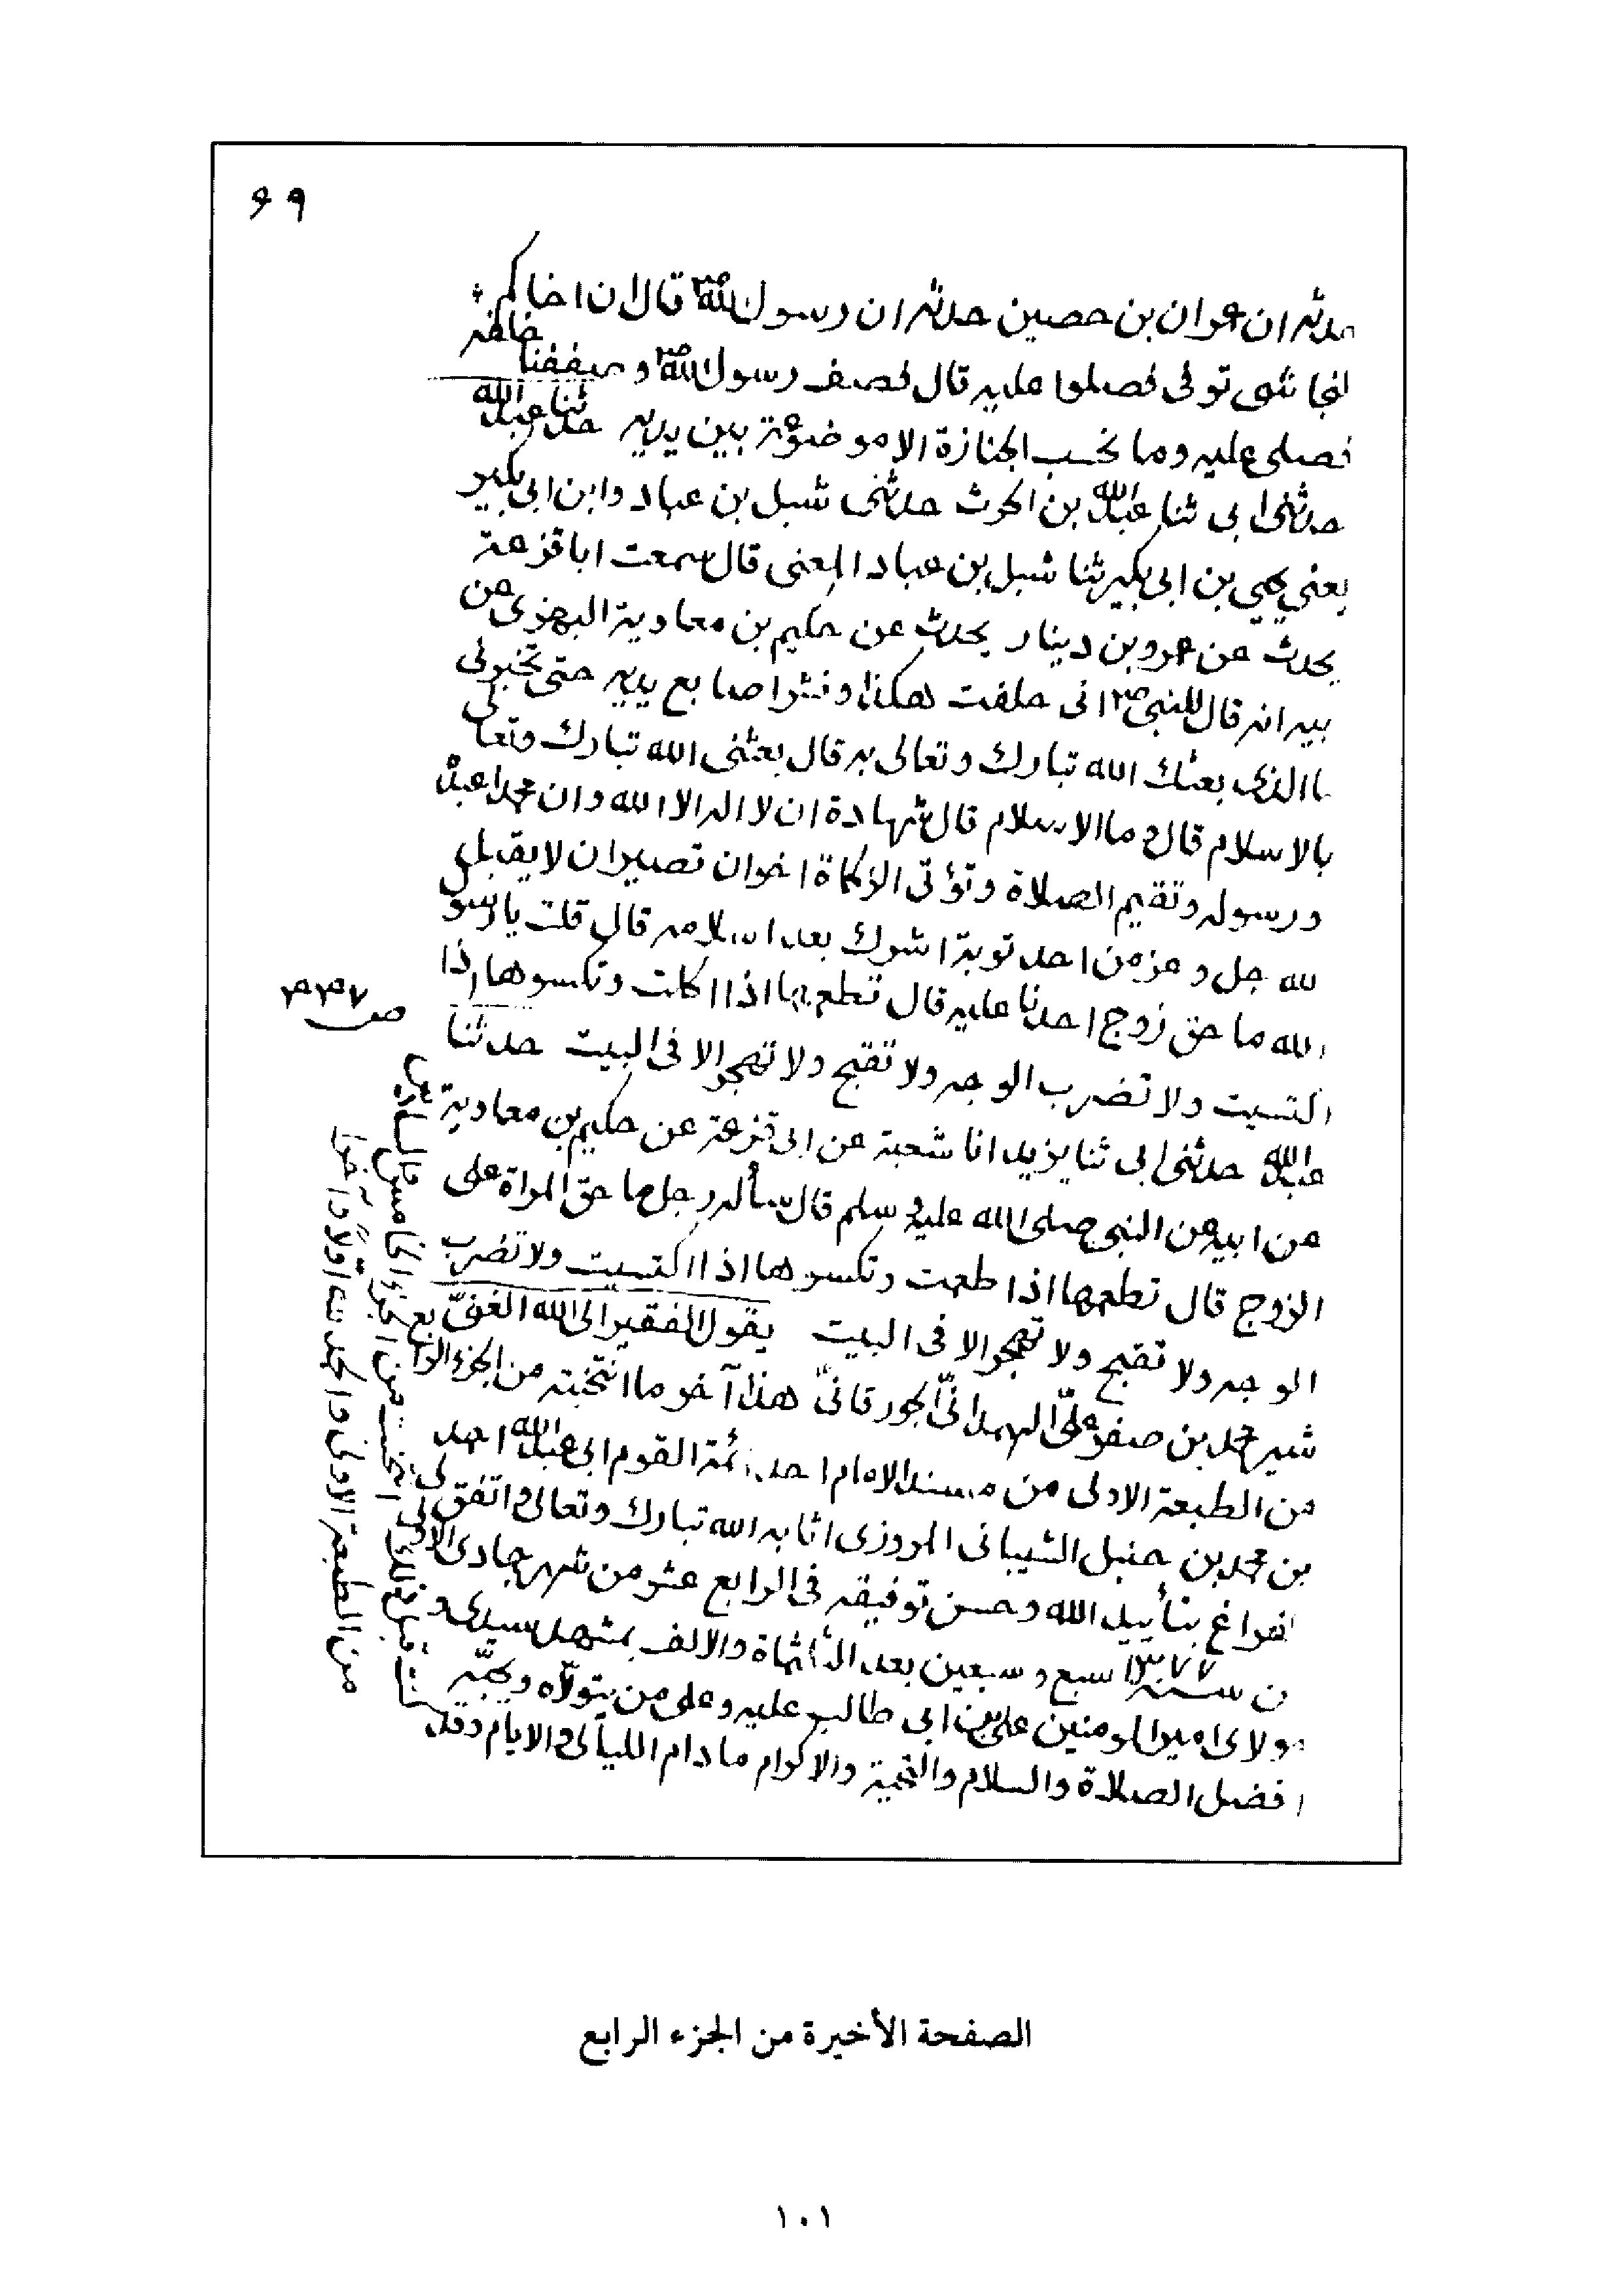 ٩٩
حدثه ان عمران بن حصين حدثه ان رسول الله ص قال ان اخاكم
النجاشى توفى فصلوا عليه قال فصف رسول الله ص وصففنا خلفه
فصلى عليه وما نحسب الجنازة الا موضوعة بين يديه حدثنا عبد الله
حدثنى ابى ثنا عبد الله بن الحرث حدثنى شبل بن عباد وابن ابى بكير
يعنى يحيى بن ابى بكير ثنا شبل بن عباد المعنى قال سمعت ابا قزعة
يحدث عن عمرو بن دينار يحدث عن حكيم بن معاوية البهزى عن
ابيه انه قال للنبى ص انى حلفت هكذا ونشر اصابع يديه حتى تخبرنى
ما الذى بعثك الله تبارك وتعالى به قال بعثنى الله تبارك وتعالى
بالاسلام قال وما الاسلام قال شهادة ان لا اله الا الله وان محمدا عبده
ورسوله وتقيم الصلاة وتؤتى الزكاة اخوان نصيران لا يقبل
الله جل وعز من احد توبة اشرك بعد اسلامه قال قلت يا رسول
الله ما حق زوج احدنا عليه قال تطعمها اذا اكلت وتكسوها اذا
اكتسيت ولا تضرب الوجه ولا تقبح ولا تهجر الا فى البيت حدثنا
ص ٤٤٧
عبد الله حدثنى ابى ثنا يزيد انا شعبة عن ابى قزعة عن حكيم بن معاوية
عن ابيه عن النبى صلى الله عليه وسلم قال سأله رجل ما حق المراة على
الزوج قال تطعمها اذا طعمت وتكسوها اذا اكتسيت ولا تضرب
الوجه ولا تقبح ولا تهجر الا فى البيت يقول الفقير الى الله الغنىّ
شير محمد بن صفر علىّ الهمدانىّ الجورقانىّ هذا آخر ما انتخبته من الجزء الرابع
من الطبعة الاولى من مسند الامام احد ائمة القوم ابى عبد الله احمد
بن محمد بن حنبل الشيبانى المروزى اثابه الله تبارك وتعالى واتفق لى
الفراغ بتأييد الله وحسن توفيقه فى الرابع عشر من شهر جمادى الاولى
من سنة ١٣٧٧ سبع وسبعين بعد الثلثماة والالف بمشهد سيدى و
مولاى امير المومنين على بن ابى طالب عليه وعلى من يتولّاه ويحبّه
افضل الصلاة والسلام والتحية والاكرام ما دام الليالى والايام وقد
كنت قبل ذلك انتخبت من الجزء الخامس والسادس
من الطبعة الاولى والحمد لله اولاً وآخرا
الصفحة الأخيرة من الجزء الرابع
١٠١